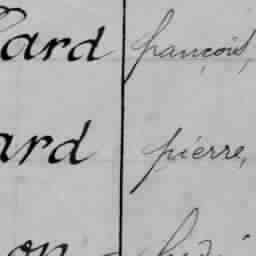 ard françois,
ard pierre,
on